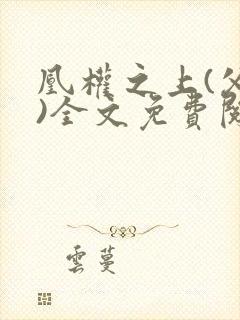 凰權之上(父
)全文免費閱
雲蔓